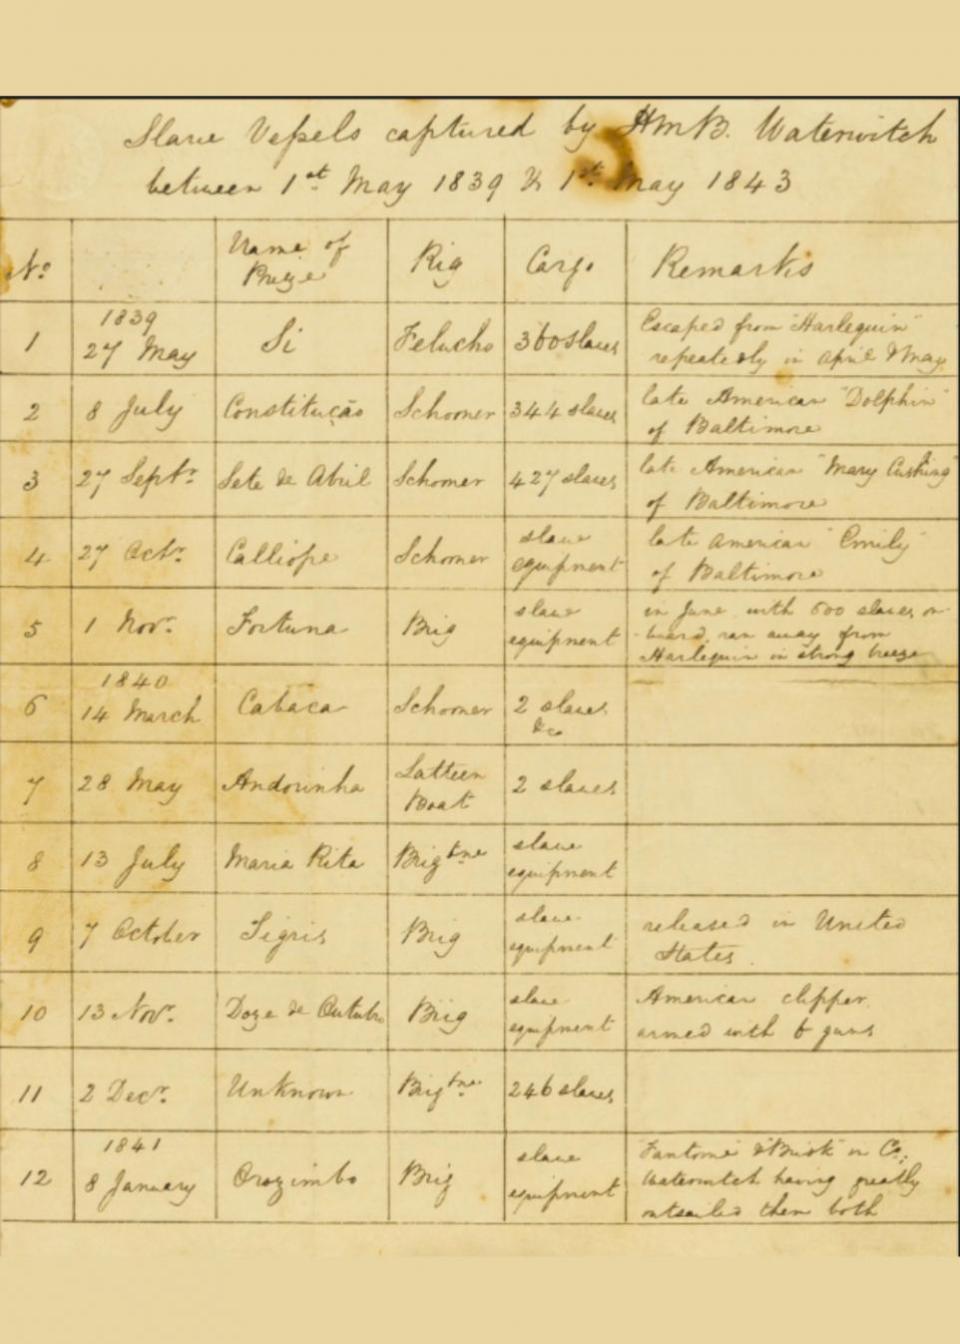 Slave Vessels captured by HMB. Waterwitch
between 1st May 1839 & 1st May 1843
No. Name of Prize Rig Cargo Remarks
1839
1 27 May Si Felucho 360 slaves Escaped from "Harlequin"
repeatedly in April & May
2 8 July Constitução Schooner 344 slaves late American "Dolphin"
of Baltimore
3 27 Septr. Sete de Abril Schooner 427 slaves late American "Mary Cushing"
of Baltimore
4 27 Octr. Calliope Schooner slave equipment late American "Emily"
of Baltimore
5 1 Novr. Fortuna Brig slave equipment in June with 600 slaves on
board, ran away from
Harlequin in strong breeze
1840
6 14 March Cabaca Schooner 2 slaves &c
7 28 May Andorinha Latteen Boat 2 slaves
8 13 July Maria Rita Brigtne slave equipment
9 7 October Tigris Brig slave equipment released in United
States.
10 13 Novr. Doze de Outubro Brig slave equipment American clipper
armed with 6 guns
11 2 Decr. Unknown Brigtne. 246 slaves
1841
12 8 January Orozimbo Brig slave equipment Fantome & "Brisk" in Co;
Waterwitch having greatly
outsailed them both